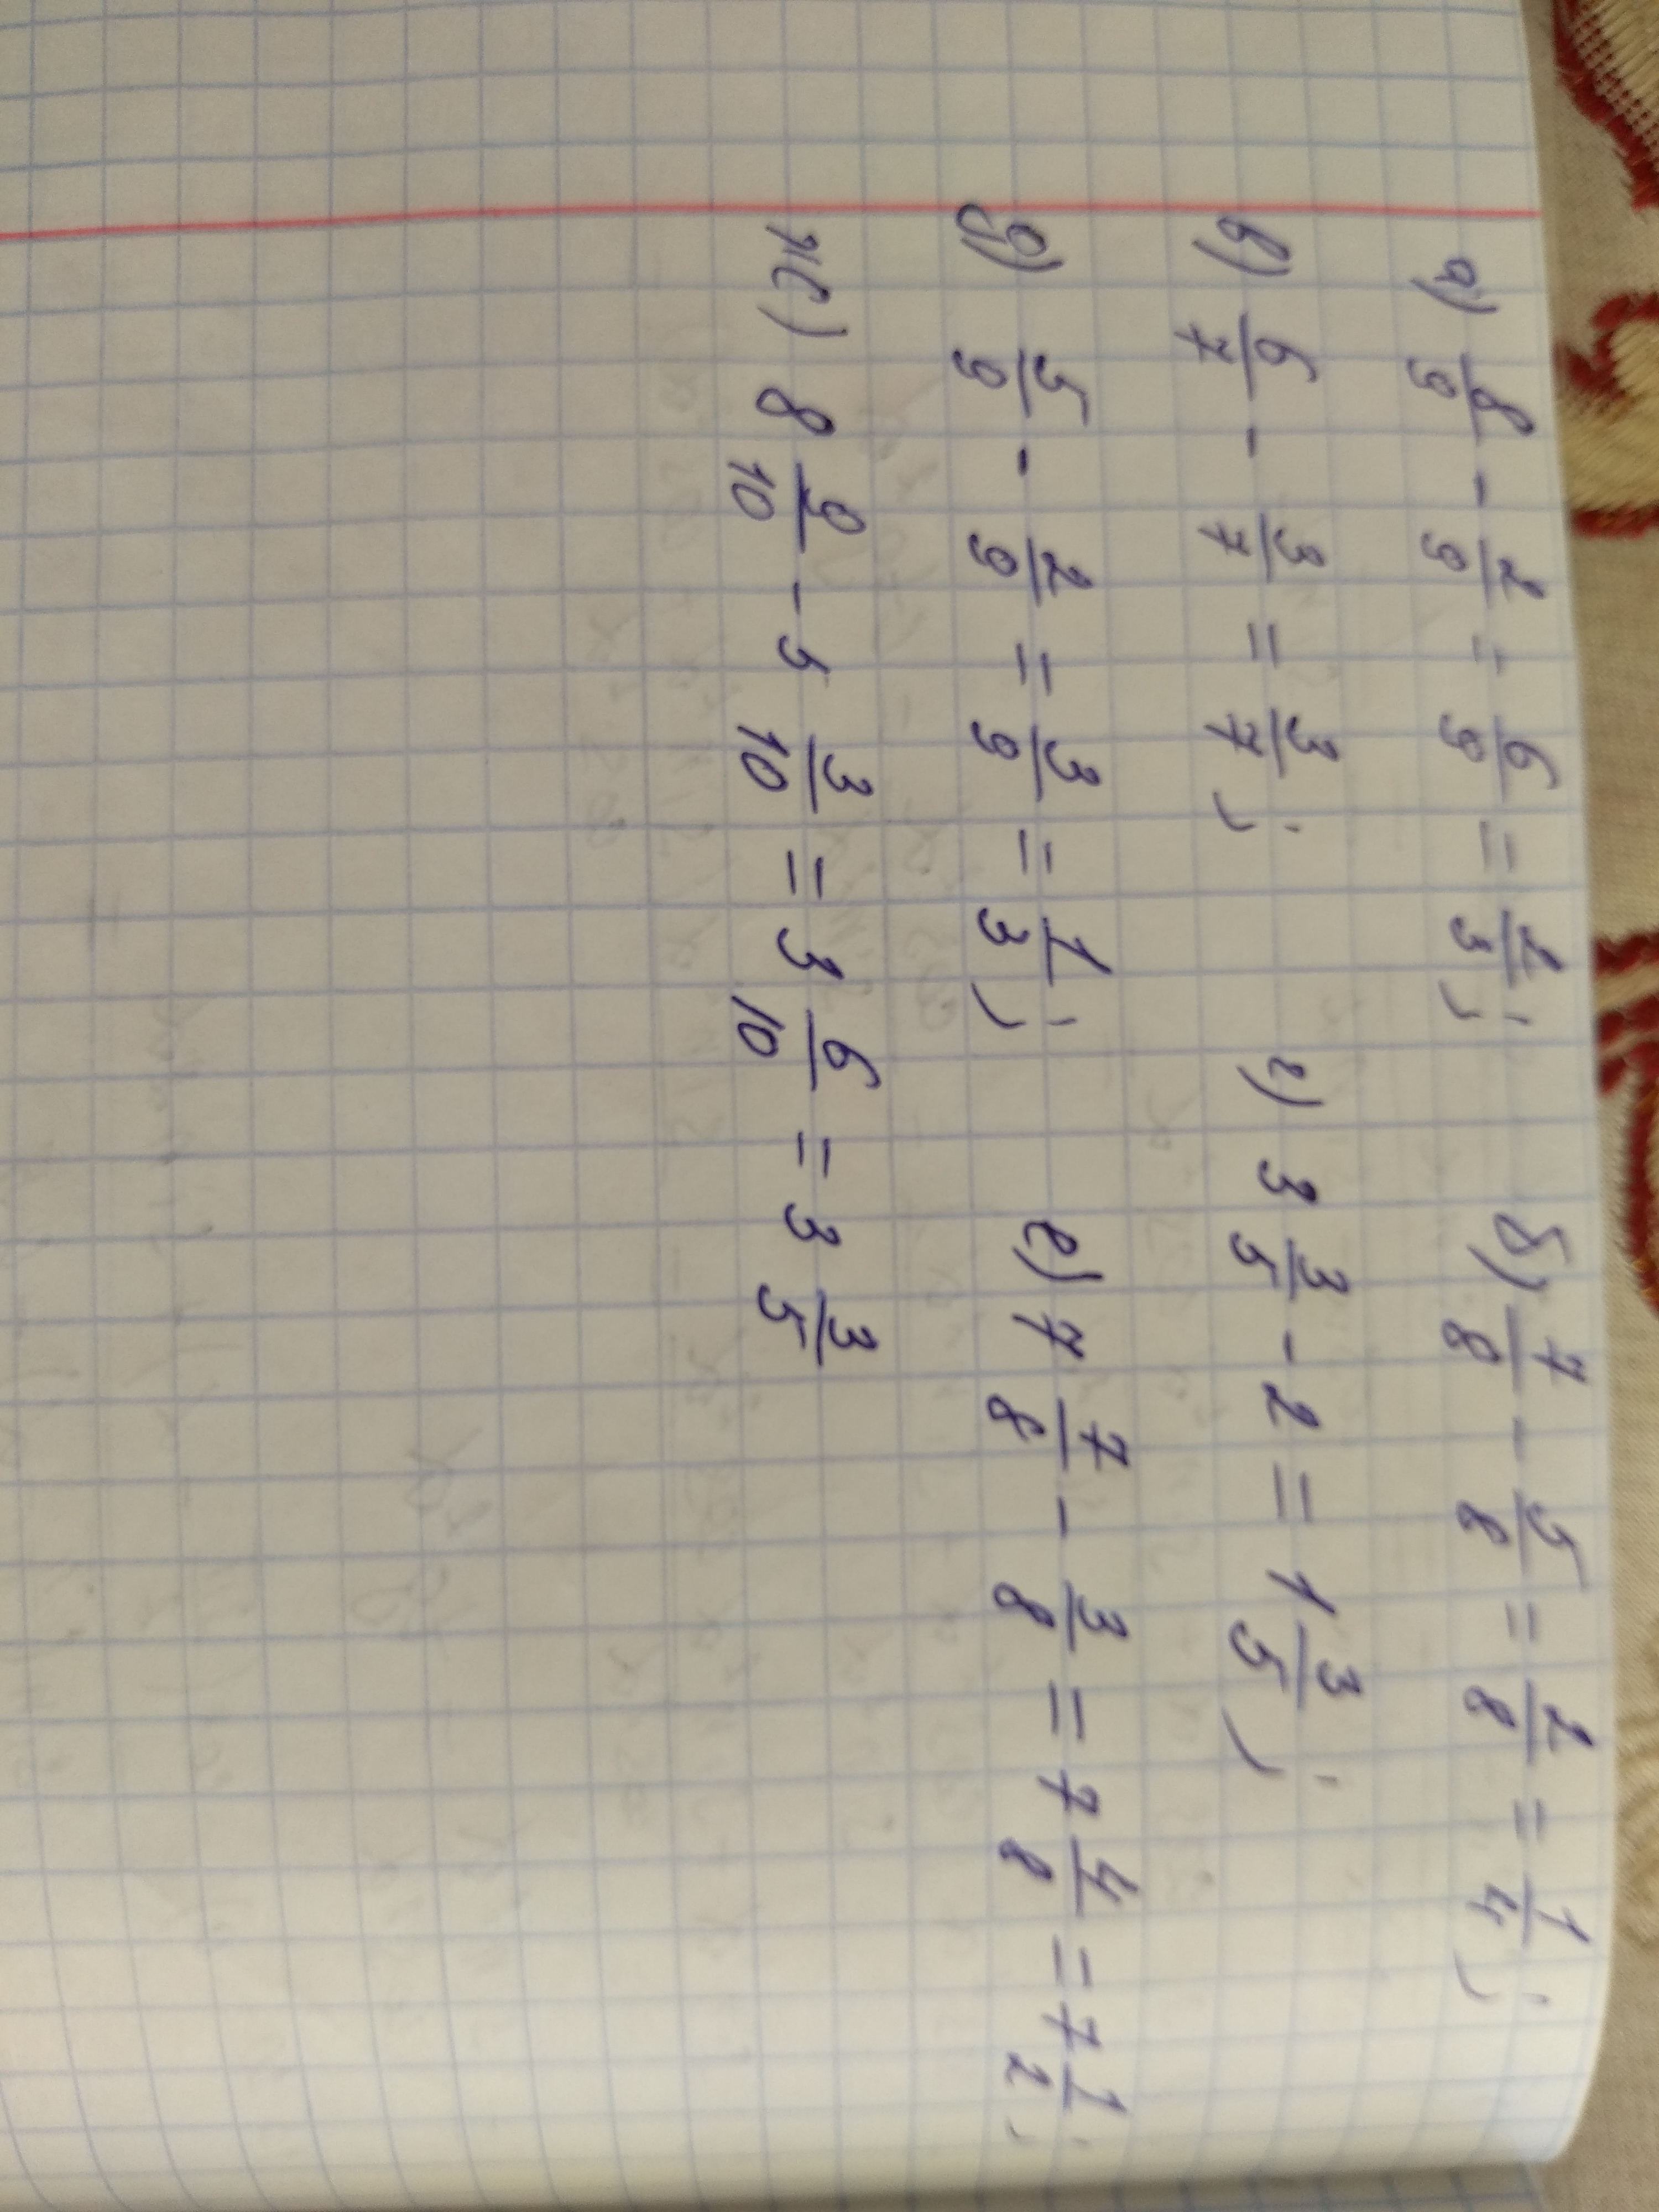 а) 8/9 - 2/9 = 6/9 = 2/3; б) 7/8 - 5/8 = 2/8 = 1/4;
в) 6/7 - 3/7 = 3/7; г) 3 3/5 - 2 = 1 3/5;
д) 5/9 - 2/9 = 3/9 = 1/3; е) 7 7/8 - 3/8 = 7 4/8 = 7 1/2;
ж) 8 9/10 - 5 3/10 = 3 6/10 = 3 3/5